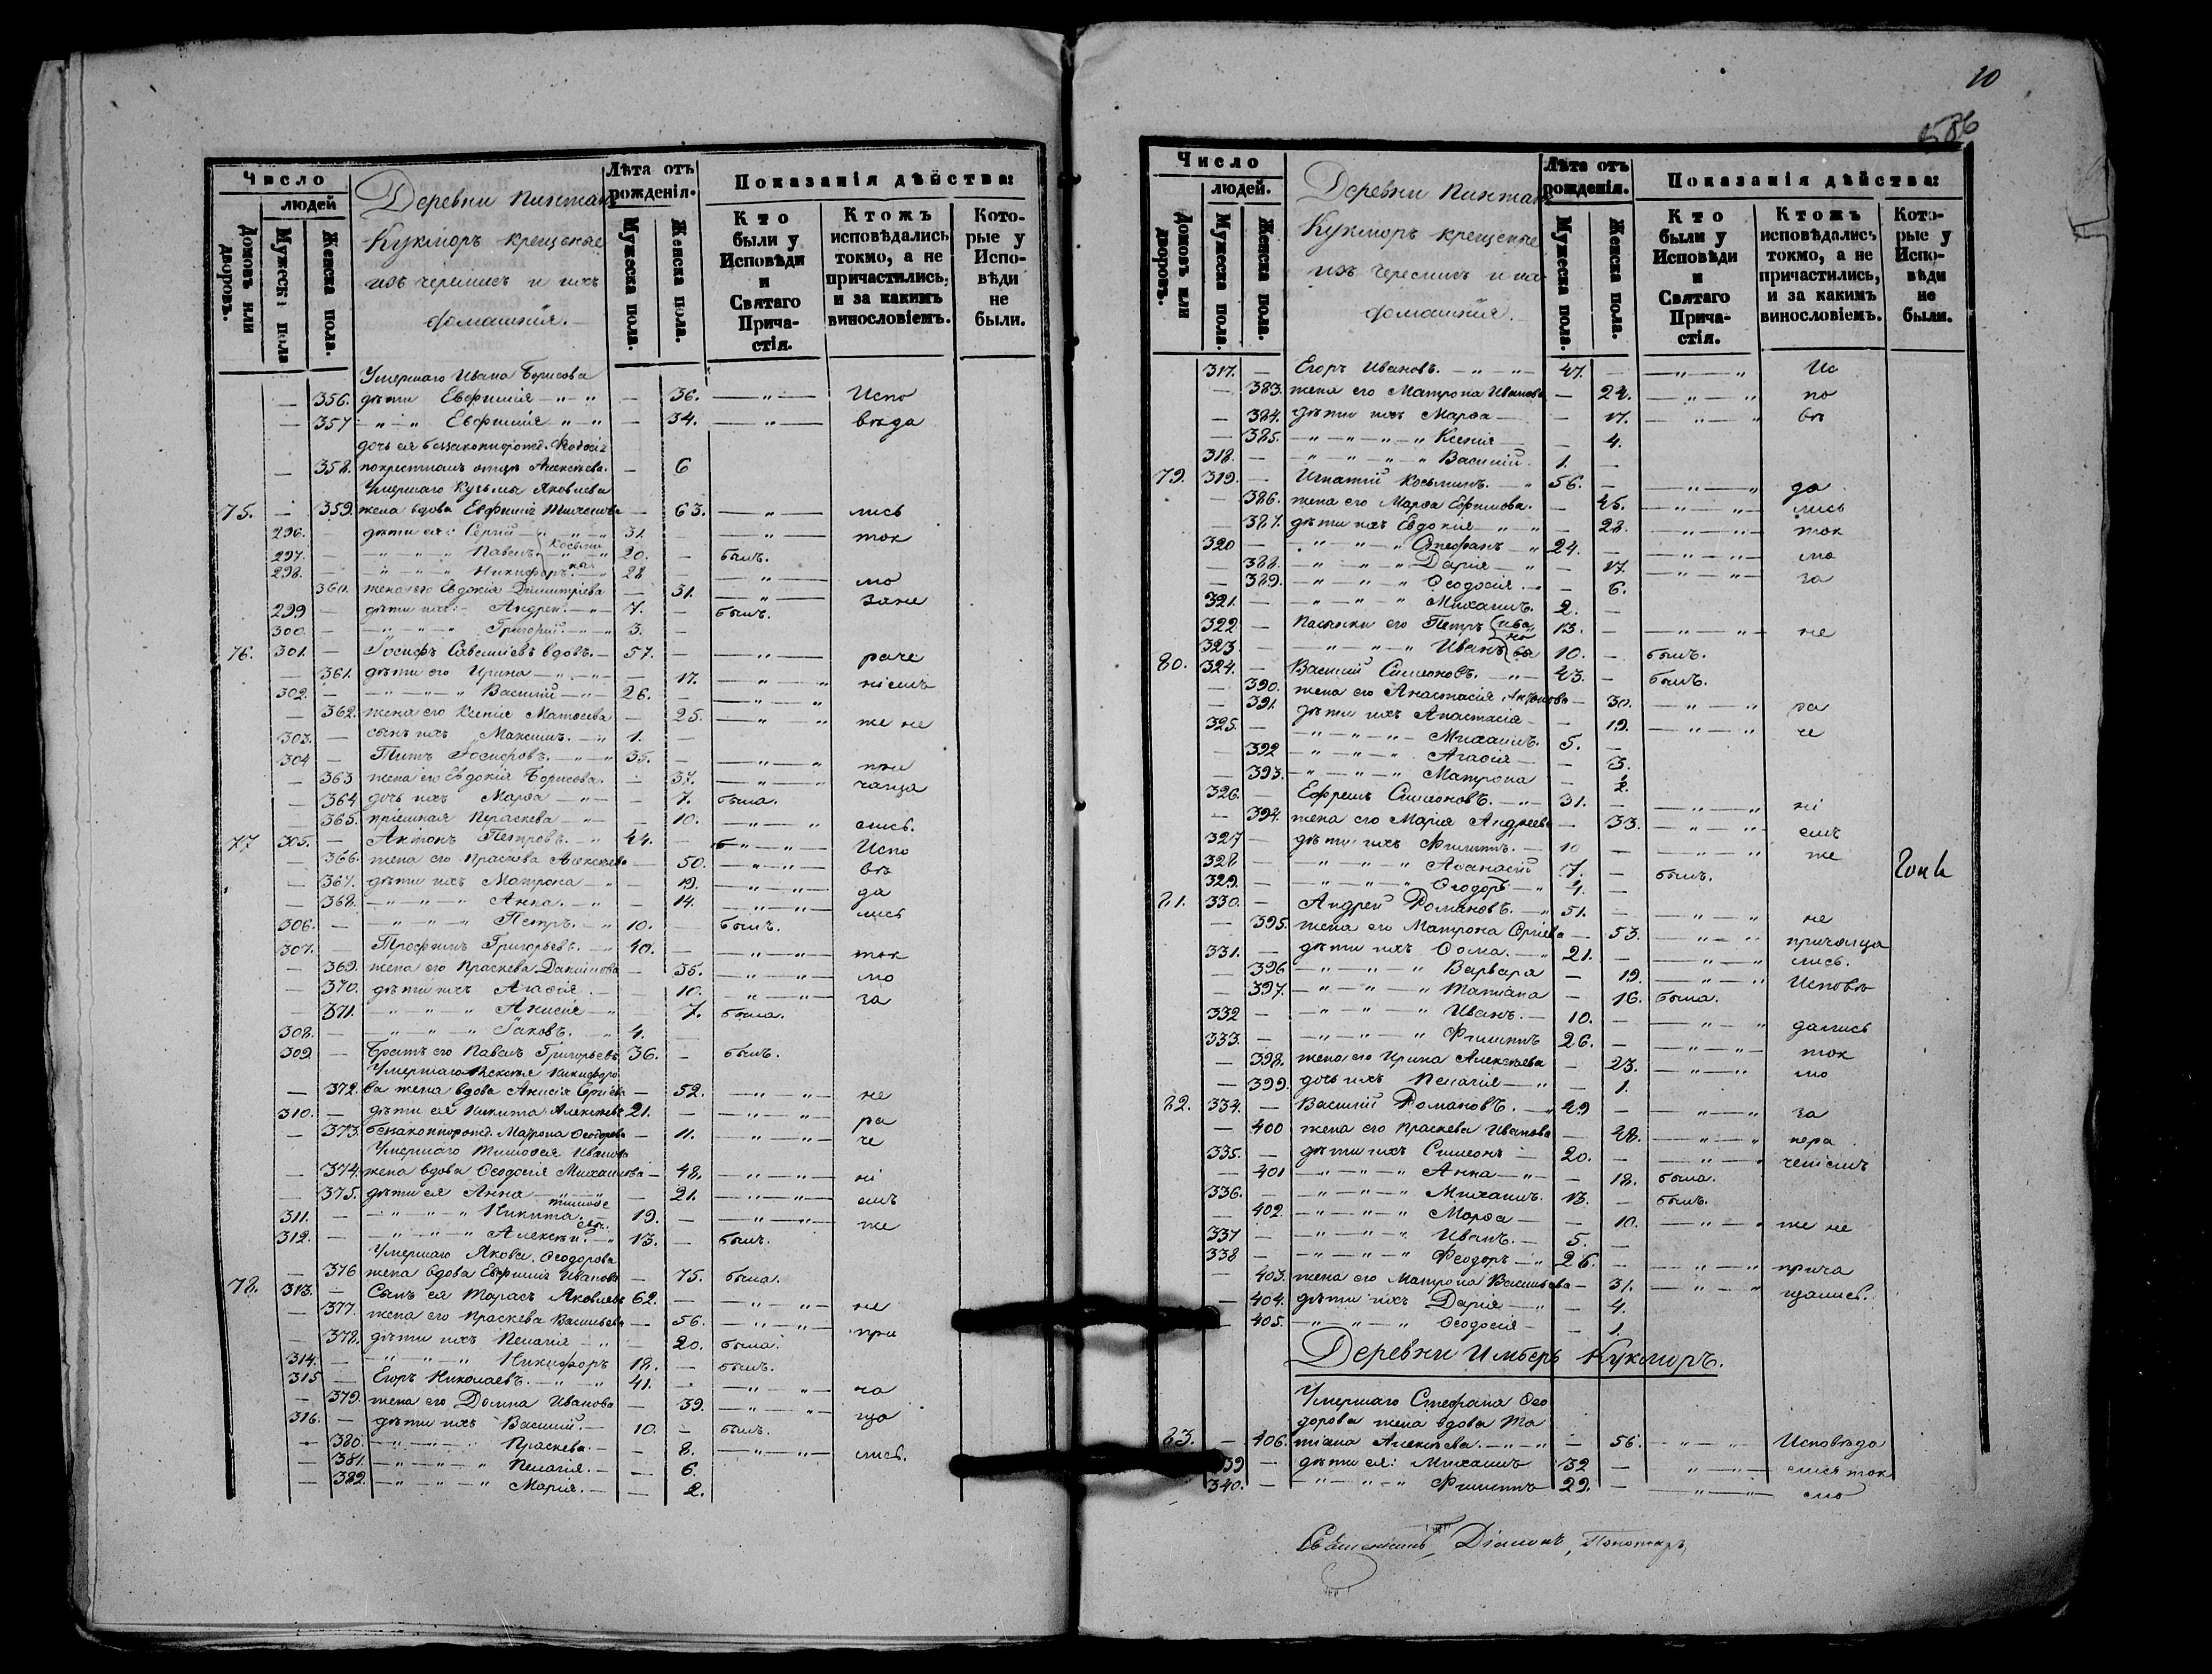 Число
людей
Домовъ или дворовъ.
Мужеск: пола
Женска пола.
Деревни Пинжан
Кукморъ крещеные
изъ черемисъ и ихъ
домашнія.
Лѣта отъ рожденія.
Мужеска пола.
Женска пола.
Показанія дѣйства:
Кто были у Исповѣди и Святаго Причастія.
Ктожъ исповѣдались токмо, а не причастились, и за какимъ винословіемъ.
Которые у Исповѣди не были.
Умершаго Ивана Борисова
— 356. дѣти Евфимія — 36. —„— Испо
— 357 „ „ Евфимія — 34. —„— вѣда
дочь ея беззаконнорожд.
— 358. Алексѣева. — 6
Умершаго Кузьмы Яковлева
75. — 359. жена вдова Евфимія — 63. —„— лись
296. — дѣти ея: Сергій 31. — —„— ток
297. — „ „ „ Павелъ Косьмины 20. — былъ.
298. — „ „ „ Никифоръ 28 — —„— мо
— 360. жена его Евдокія Димитріева — 31. —„— зане
299 — дѣти ихъ: Андрей. 7. — былъ.
300. — „ „ „ Григорій. 3. —
76. 301. — Іосифъ Савельевъ вдовъ. 57. — —„— раче
— 361. дѣти его Ирина — 17. —„— ніемъ
302. — „ „ „ Василій 26. — —„—„
— 362. жена его Ксенія Матѳеева — 25. —„—„ же не
303. — сынъ ихъ Максимъ. 1. —
304 — Титъ Іосифовъ. 35. — —„—„ при
— 363 жена его Евдокія Борисова. — 37. —„—„ чаща
— 364 дочь ихъ Марѳа — 7. была.
— 365. пріемная Параскева — 10. —„—„ лись.
77 305. — Антонъ Петровъ. 44. — —„—„— Испо
— 366. жена его Праскева Алексѣева — 50. —„—„— вѣ
— 367. дѣти ихъ Матрона — 19. —„—„— да
— 368. „ „ „ Анна. — 14. —„—„— лись
306. — „ „ „ Петръ. 10. — былъ.
307. — Трофимъ Григорьевъ. 40. — —„—„— ток
— 369. жена его Праскева — 35. —„—„— мо
— 370. дѣти ихъ Агаѳія — 10. —„—„— за
— 371. „ „ „ Анисія — 7. была.
308. — „ „ „ Іаковъ. 4. —
309 — Братъ его Павелъ Григорьевъ 36. — былъ.
Умершаго Алексѣя Никифоро
— 372. ва жена вдова Анисія Сергіева — 52. —„—„— не
310. — дѣти ея Никита Алексѣевъ 21. — —„—„— ра
— 373. беззаконнорожд. Матрона Ѳеодорова — 11. —„—„— че
Умершаго Тимоѳея Иванова
— 374. жена вдова Ѳеодосія Михаилова — 48. —„—„— ні
— 375. дѣти ея Анна — 21. —„—„— емъ
311. — „ „ „ Никита Тимоѳеевы 19. — —„—„— же
312. — „ „ „ Алексѣй. 13. — былъ.
Умершаго Якова Ѳеодорова
— 376 жена вдова Евфимія Иванова — 75. была.
78. 313. — Сынъ ея Тарасъ Яковлевъ 62. — —„—„— не
— 377. жена его Праскева Васильева — 56. —„—„— при
— 378. дѣти ихъ Пелагія — 20. была.
314. — „ „ „ Никифоръ 18. — былъ.
315 — Егоръ Николаевъ. 41. — —„—„— ча
— 379. жена его Домна Иванова — 39. —„—„— ща
316. — дѣти ихъ Василій. 10. — былъ.
— 380. „ „ „ Праскева. — 8. —„—„— лись.
— 381. „ „ „ Пелагія. — 6.
— 382. „ „ „ Марія. — 2.
10
586
Число
людей.
Домовъ или дворовъ.
Мужеска пола.
Женска пола.
Деревни Пинжан
Кукморъ крещеные
изъ черемисъ и их
домашнія.
Лѣта отъ рожденія.
Мужеска пола.
Женска пола.
Показанія дѣйства:
Кто были у Исповѣди и Святаго Причастія.
Ктожъ исповѣдались токмо, а не причастились, и за какимъ винословіемъ.
Которые у Исповѣди не были.
317. — Егоръ Ивановъ. 47. — —„—„ Ис
— 383. жена его Матрона Иванова — 24. —„—„ по
— 384. дѣти ихъ Марѳа — 17. —„—„ вѣ
— 385. „ „ „ Ксенія — 4.
318. — „ „ „ Василій. 1. —
79. 319. — Игнатій Косьминъ. 56. — —„—„ да
— 386. жена его Марѳа Ефимова. — 45. —„—„— лись
— 387. дѣти ихъ Евдокія — 28. —„—„— ток
320 — „ „ „ Стефанъ 24. — —„—„— мо
— 388. „ „ „ Дарія — 17. —„—„— за
— 389. „ „ „ Ѳеодосія — 6.
321. — „ „ „ Михаилъ. 2. —
322 — Пасынки его Петръ Ивановы 13. — —„—„— не
323 — „ „ „ Иванъ 10. — былъ.
80. 324. — Василій Симеоновъ. 43. — былъ.
— 390. жена его Анастасія Антонова — 30. —„—„ ра
— 391. дѣти ихъ Анастасія — 19. —„—„ че
325. — „ „ „ Михаилъ. 5. —
— 392 „ „ „ Агаѳія — 3.
— 393. „ „ „ Матрона — 2.
326. — Ефремъ Симеоновъ. 31. — —„—„ ні
— 394. жена его Марія Андреева — 33. —„—„ емъ
327 — дѣти ихъ Филиппъ. 10 — —„—„ же
328 — „ „ „ Аѳанасій 7. — былъ.
329. — „ „ „ Ѳеодоръ 4. —
81. 330. — Андрей Романовъ. 51. — —„—„ не
— 395. жена его Матрона Сергіева — 53. —„—„ причаща
331. — дѣти ихъ Ѳома. 21. — —„—„ лись.
— 396 „ „ „ Варвара — 19. —„—„ Исповѣ
— 397. „ „ „ Татіана — 16. была.
332 — „ „ „ Иванъ. 10. — —„—„ дались
333. — „ „ „ Филиппъ 26. — —„—„— ток
— 398. жена его Ирина Алексѣева — 23. —„—„ мо
— 399. дочь ихъ Пелагія — 1.
82. 334. — Василій Романовъ. 49 — —„—„ за
— 400 жена его Праскева Иванова — 48. —„—„ нера
335. — дѣти ихъ Симеонъ 20. — —„—„ ченіемъ
— 401 „ „ „ Анна — 18. была.
336. — „ „ „ Михаилъ. 13. — былъ.
— 402. „ „ „ Марѳа — 10. —„—„ же не
337 — „ „ „ Иванъ. 5. —
338 — „ „ „ Ѳеодоръ 26. — —„—„ прича
— 403. жена его Матрона Васильева — 31. —„—„ щались.
— 404. дѣти ихъ Дарія — 4.
— 405. „ „ „ Ѳеодосія — 1.
Деревни Имберь Кукморъ.
Умершаго Стефана Ѳео
дорова жена вдова Та
83. — 406. тіана Алексѣева. — 56. —„—„ Исповѣда
339 — дѣти ея: Михаилъ 32 — „—„— лися ток
340. — „ „ „ Филиппъ 29. — —„—„ мо
Священникъ, Діаконъ, Пономарь,